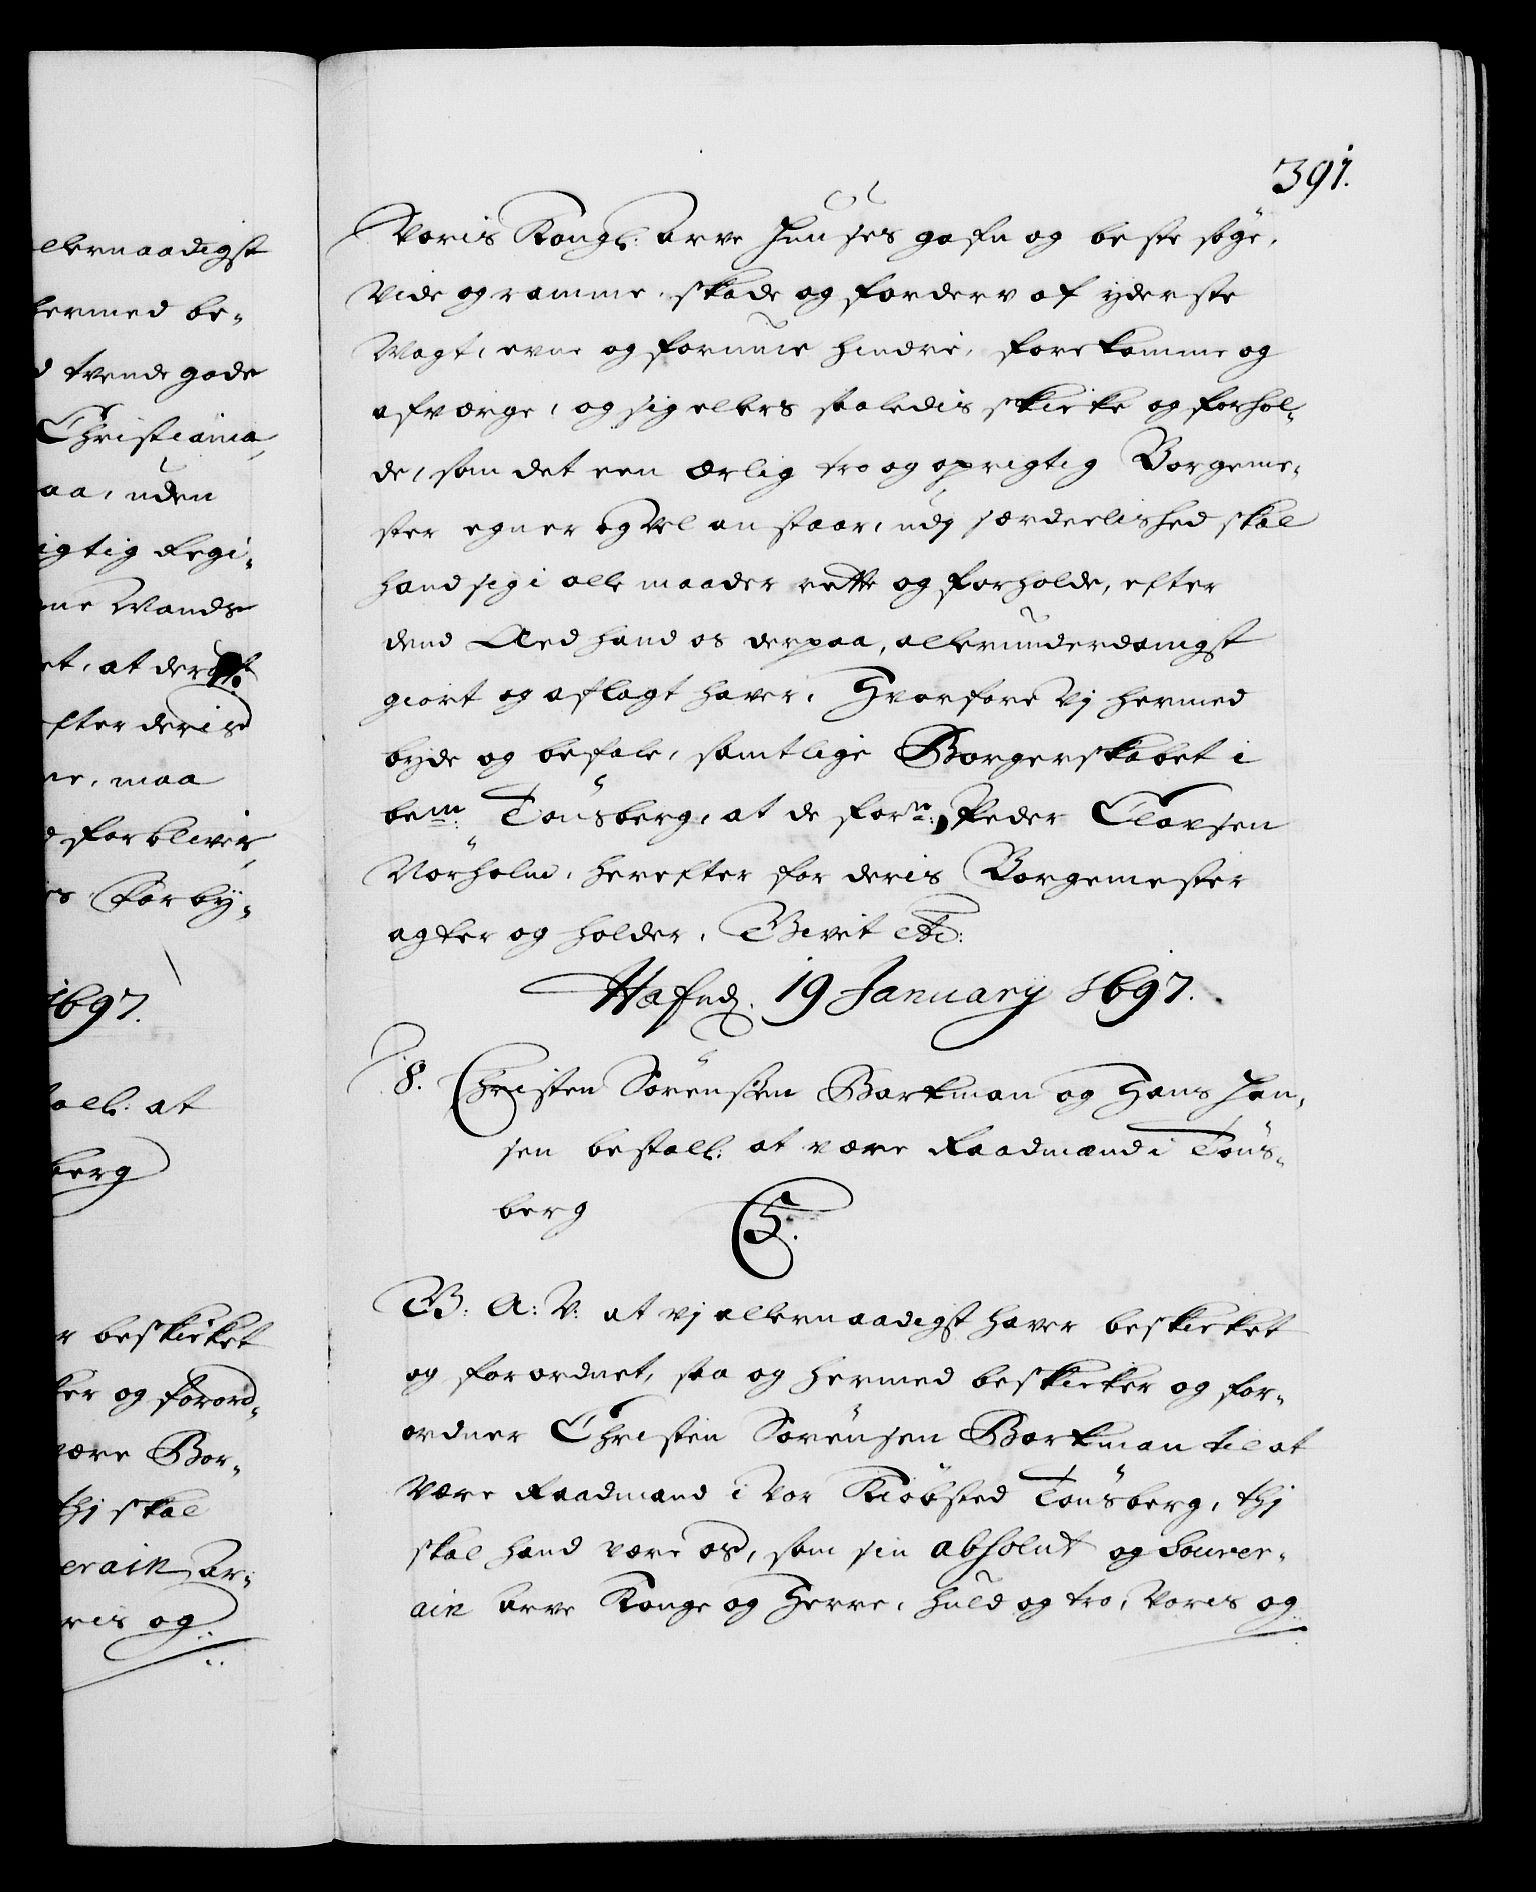 llernaadigst
ermed be-
d tvende gode
Christiania,
aa, uden
igtig Regi-
ne Mands
et, at der
efter deris
ne, maa
d forblive,
is forby-
1697.
all: at
berg
r beskicket
ker og forord-
være Bor-
thj skal
erain Ar-
ris og
391.
Voris Kongl: Arve Huuses gafn og beste søge,
vide og ramme, skade og forderv af yderste
Magt, evne og formue hindre, forekomme og
afværge, og sig ellers saaledis skicke og forhol-
de, som det een ærlig tro og oprigtig Borgeme-
ster egner og vel anstaar, udj særdeelished skal
hand sig i alle maader rette og forholde, efter
dend Aed hand os derpaa, allerunderdanigst
giort og aflagt haver. Hvorfore Vj hermed
byde og befale, samtlige Borgerskabet i
bem: Tønsberg, at de forn: Peder Claesen
Nørholm, herefter for deris Borgemester
agter og holder. Givet Etc:
Hafnæ. 19 January 1697.
8. Christen Sørensen Barkman og Hans Jen-
sen bestall: at være Raadmænd i Tøns-
berg
C5.
G: A: V: at vj allernaadigst haver beskicket
og forordnet, saa og hermed beskicker og for-
ordner Christen Sørensen Barkman til at
være Raadmand i vor Kiøbsted Tønsberg, thj
skal hand være os, som sin absolut og Souver-
ain Arve Konge og Herre, huld og tro, Voris og